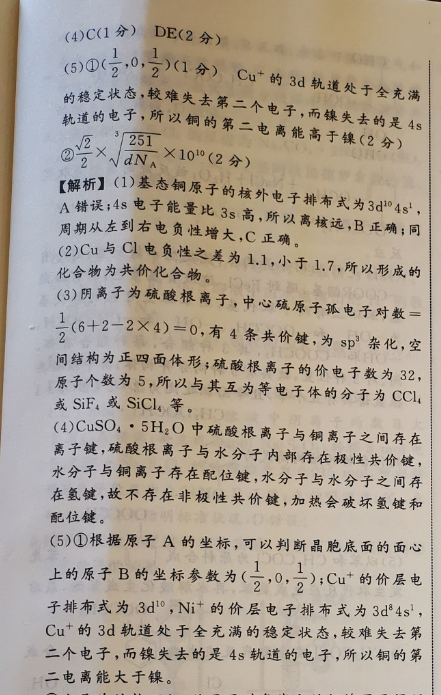 (4)C(1分) DE(2分)
(5)①(1/2,0,1/2)(1分) Cu⁺的3d轨道处于全充满
的稳定状态,较难失去第二个电子,而镍失去的是4s
轨道的电子,所以铜的第二电离能高于镍(2分)
②√2/2×∛(251/dN_A)×10¹⁰(2分)
【解析】(1)基态铜原子的核外电子排布式为3d¹⁰4s¹,
A错误;4s电子能量比3s高,所以离核远,B正确;同
周期从左到右电负性增大,C正确。
(2)Cu与Cl电负性之差为1.1,小于1.7,所以形成的
化合物为共价化合物。
(3)阴离子为硫酸根离子,中心硫原子孤电子对数=
1/2(6+2-2×4)=0,有4条共价键,为sp³杂化,空
间结构为正四面体形;硫酸根离子的价电子数为32,
原子个数为5,所以与其互为等电子体的分子为CCl₄
或SiF₄或SiCl₄等。
(4)CuSO₄·5H₂O中硫酸根离子与铜离子之间存在
离子键,硫酸根离子与水分子内部存在极性共价键,
水分子与铜离子存在配位键,水分子与水分子之间存
在氢键,故不存在非极性共价键,加热会破坏氢键和
配位键。
(5)①根据原子A的坐标,可以判断晶胞底面的面心
上的原子B的坐标参数为(1/2,0,1/2);Cu⁺的价层电
子排布式为3d¹⁰,Ni⁺的价层电子排布式为3d⁸4s¹,
Cu⁺的3d轨道处于全充满的稳定状态,较难失去第
二个电子,而镍失去的是4s轨道的电子,所以铜的第
二电离能大于镍。